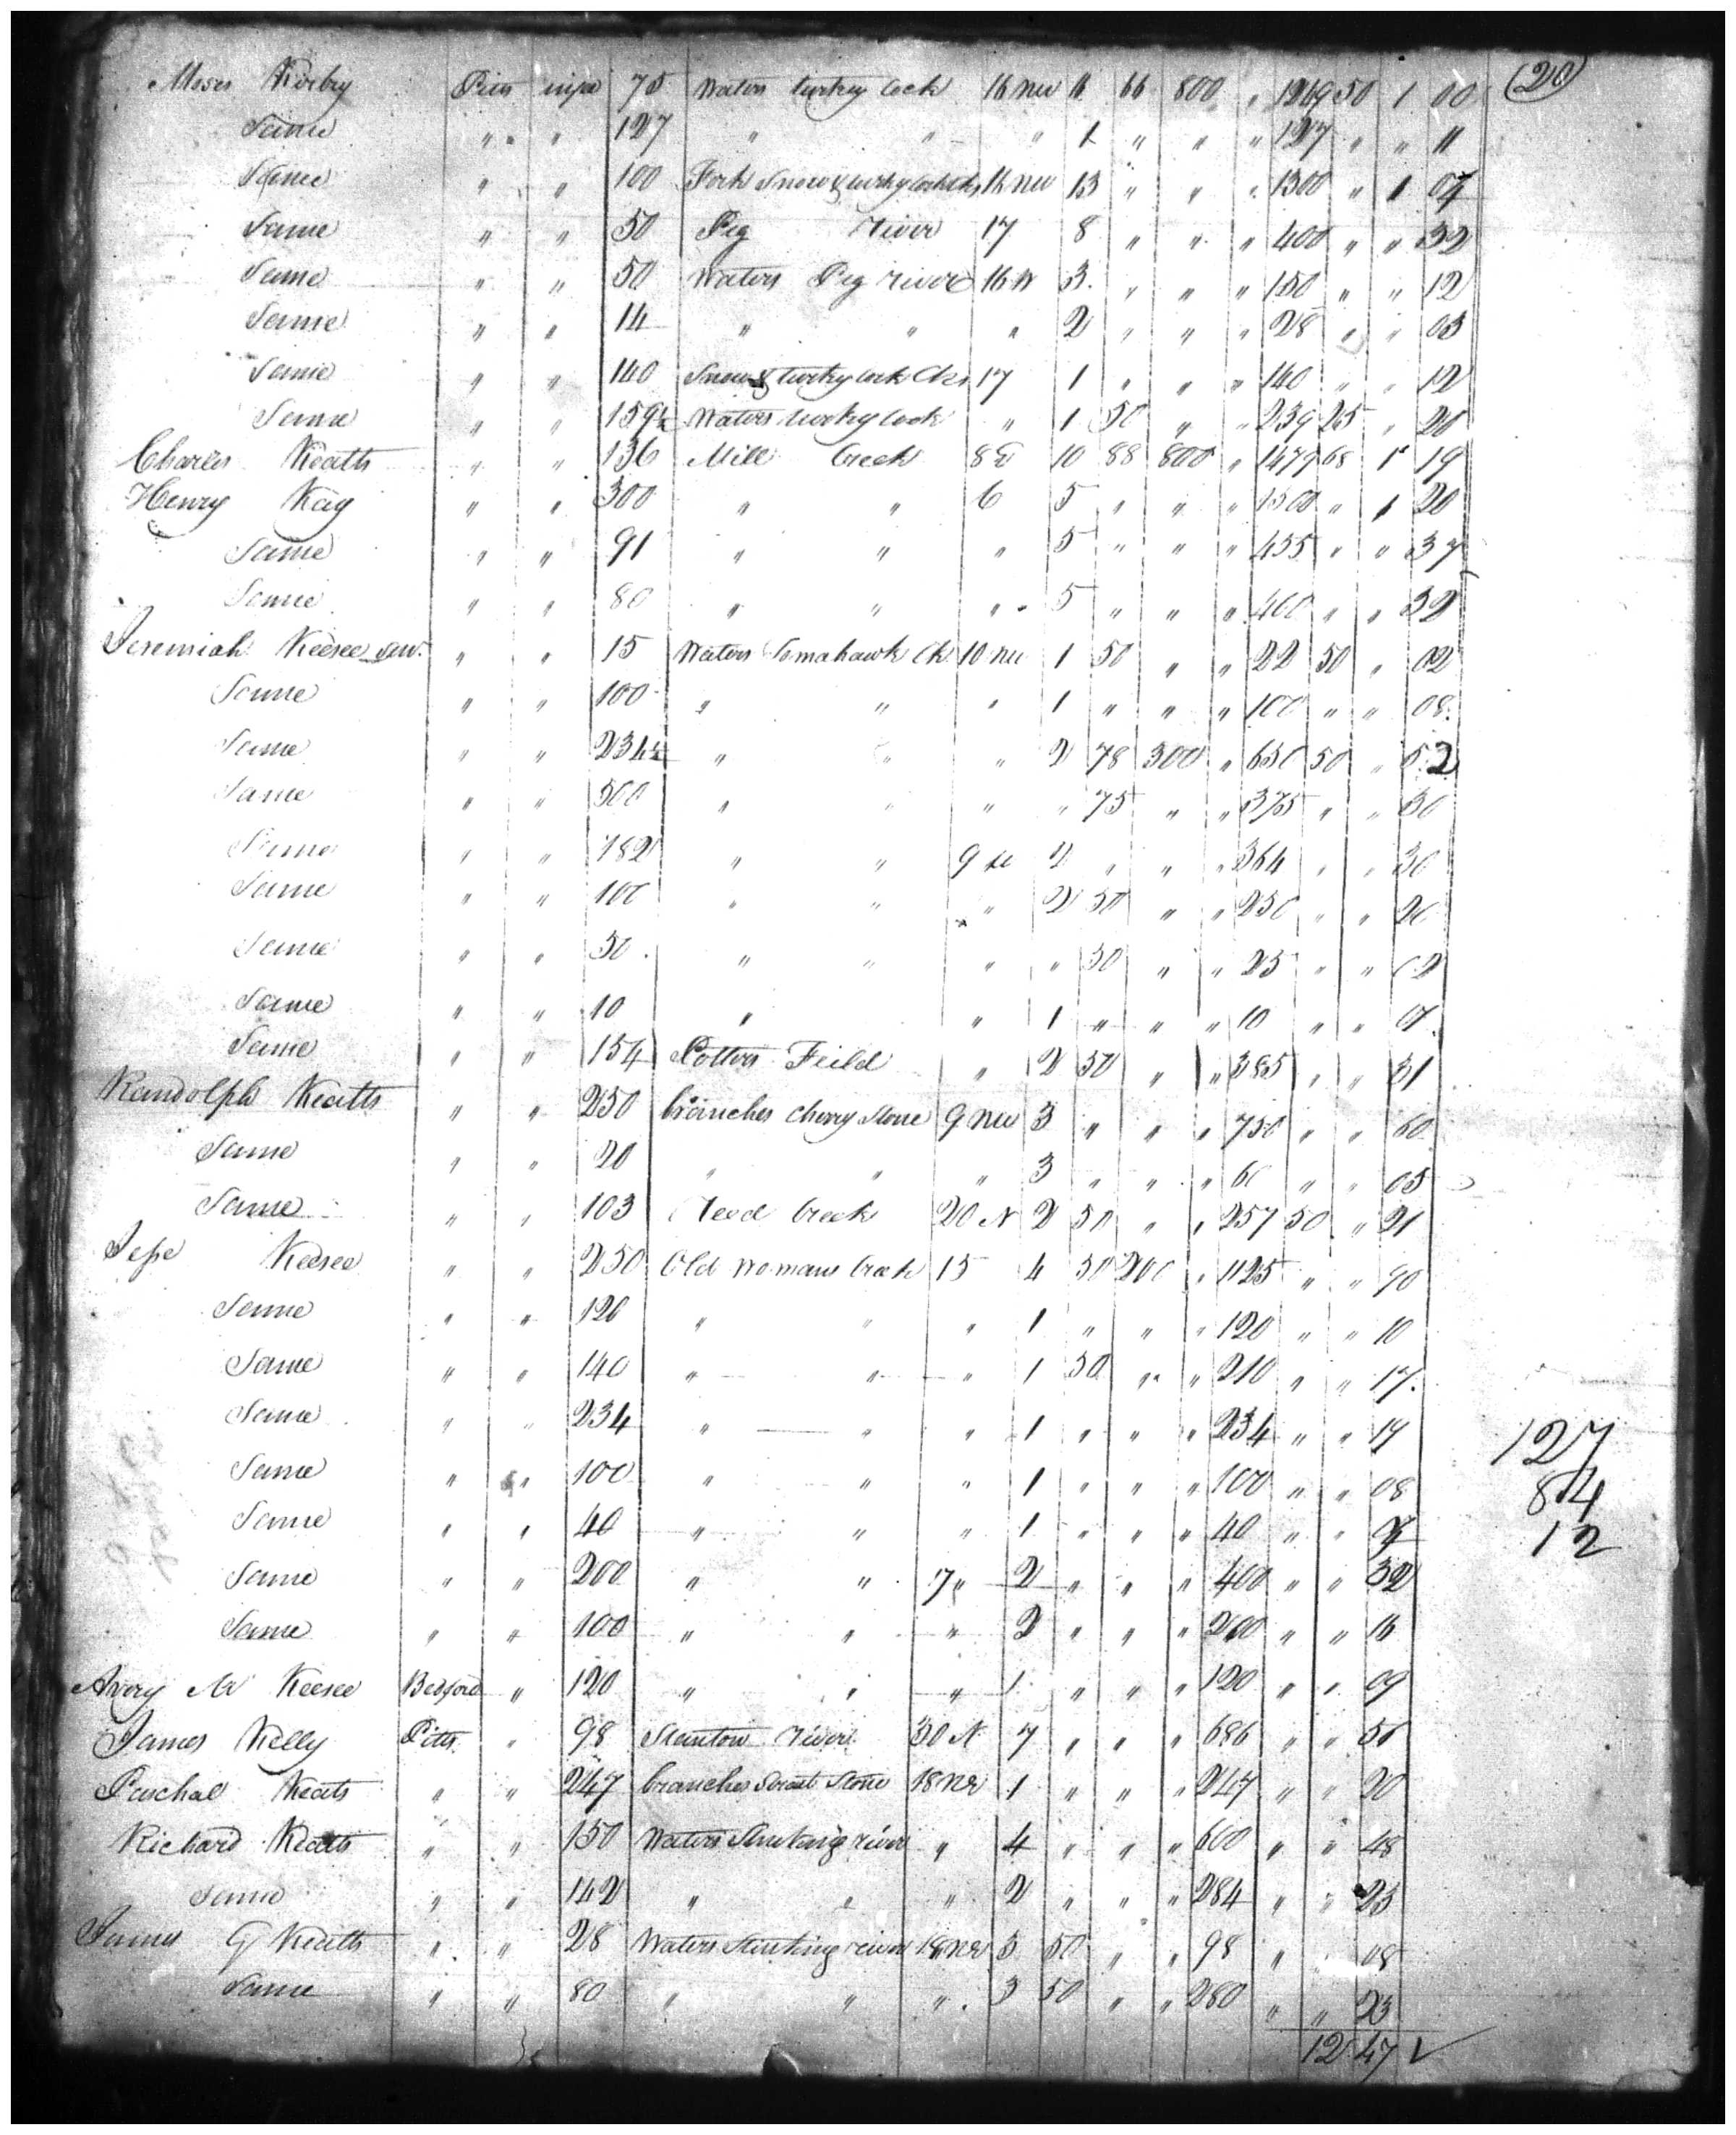 Moses Kirby Pitts in fee 75 Waters turkey cock 16 NW 16 66 800 " 1249 50 1 00 (20)
Same " " 127 " " " 1 " " " 127 " " 11
Same " " 100 Fork Snow & turkey cock cks 16 NW 13 " " " 1300 " 1 04
Same " " 50 Pig River 17 8 " " " 400 " " 32
Same " " 50 Waters Pig river 16 W 3 " " " 150 " " 12
Same " " 14 " " " 2 " " " 28 " " 03
Same " " 140 Snow & turkey cock Cks 17 1 " " " 140 " " 12
Same " " 159½ Waters turkey cock " 1 50 " " 239 25 " 20
Charles Keatts " " 136 Mill Creek 8 E 10 88 800 " 1479 68 1 19
Henry Kay " " 300 " " 6 5 " " " 1500 " 1 20
Same " " 91 " " " 5 " " " 455 " " 37
Same " " 80 " " " 5 " " " 400 " " 32
Jeremiah Keesee sen. " " 15 Waters Tomahawk Ck 10 NW 1 50 " " 22 50 " 02
Same " " 100 " " " 1 " " " 100 " " 08
Same " " 234½ " " " 2 78 300 " 650 50 " 52
Same " " 500 " " " " 75 " " 375 " " 30
Same " " 182 " " 9 2 " " " 364 " " 30
Same " " 100 " " " 2 50 " " 250 " " 20
Same " " 50 " " " " 50 " " 25 " " 02
Same " " 10 " " 1 " " " 10 " " 01
Same " " 154 Potters Feild " 2 50 " " 385 " " 31
Randolph Keatts " " 250 branches cherry Stone 9 NW 3 " " " 750 " " 60
Same " " 20 " " " 3 " " " 60 " " 05
Same " " 103 Reed Creek 20 N 2 50 " " 257 50 " 21
Jesse Keesee " " 250 Old womans Creek 15 4 50 200 " 1125 " " 90
Same " " 120 " " " 1 " " " 120 " " 10
Same " " 140 " " " 1 50 " " 210 " " 17
Same " " 234 " " " 1 " " " 234 " " 19
Same " " 100 " " " 1 " " " 100 " " 08
Same " " 40 " " " 1 " " " 40 " "
Same " " 200 " " 17 " 2 " " " 400 " " 32
Same " " 100 " " " 2 " " " 200 " " 16
Avery M Keesee Bedford " 120 " " " 1 " " " 120 " " 09
James Kelly Pitts " 98 Stanton river 30 N 7 " " " 686 " " 55
Paschal Keats " " 247 branches Straight Stone 18 NE 1 " " " 247 " " 20
Richard Keatts " " 150 Waters Stinking river " 4 " " " 600 " " 48
Same " " 142 " " " 2 " " " 284 " " 23
James G Keatts " " 28 Waters Stinking river 18 NE 3 50 " " 98 " " 08
Same " " 80 " " " 3 50 " " 280 " " 23
12.47 ✓
127
84
12